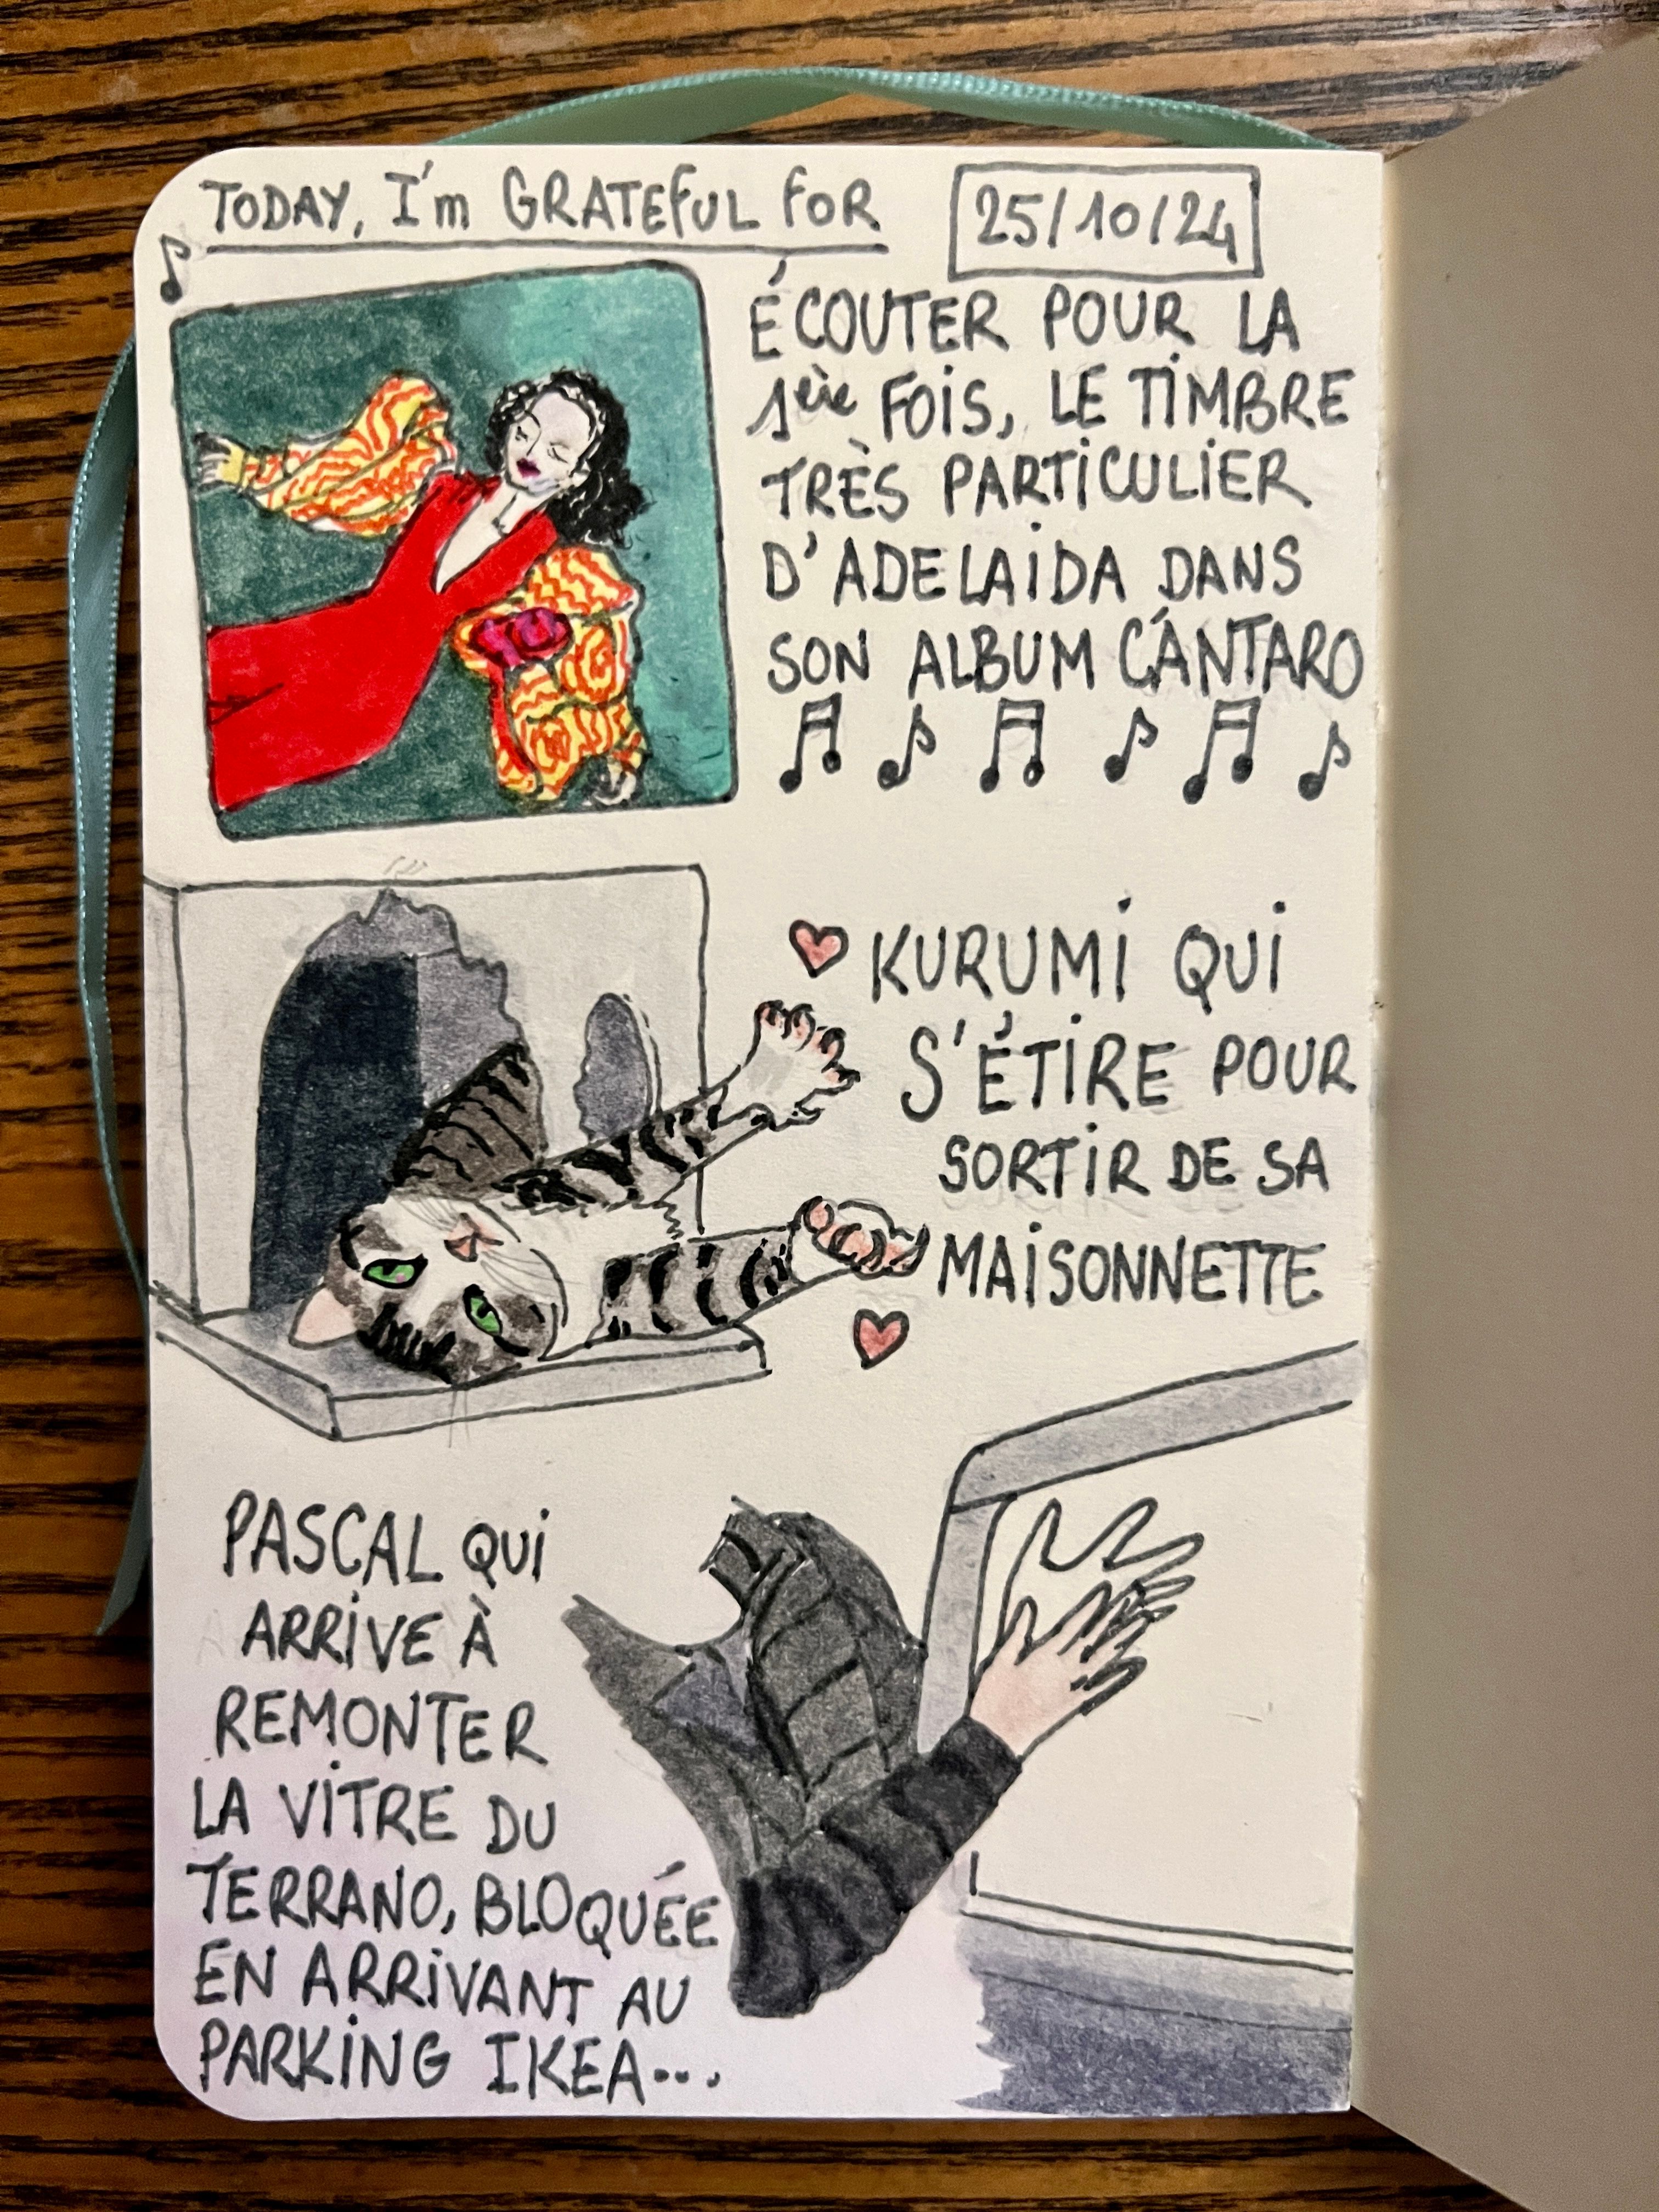 TODAY, I'm GRATEFUL FOR
25/10/24
ÉCOUTER POUR LA
1ère FOIS, LE TIMBRE
TRÈS PARTICULIER
D'ADELAIDA DANS
SON ALBUM CÁNTARO
KURUMI QUI
S'ÉTIRE POUR
SORTIR DE SA
MAISONNETTE
PASCAL QUI
ARRIVE À
REMONTER
LA VITRE DU
TERRANO, BLOQUÉE
EN ARRIVANT AU
PARKING IKEA...